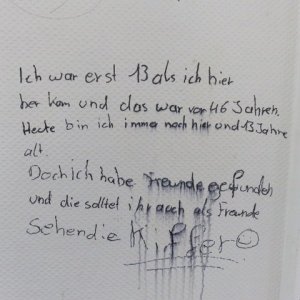 Ich war erst 13 als ich hier
her kam und das war vor 46 Jahren.
Heute bin ich immer noch hier und 13 Jahre
alt.
Doch ich habe Freunde gefunden
und die solltet ihr auch als Freunde
Sehen die Kiffer